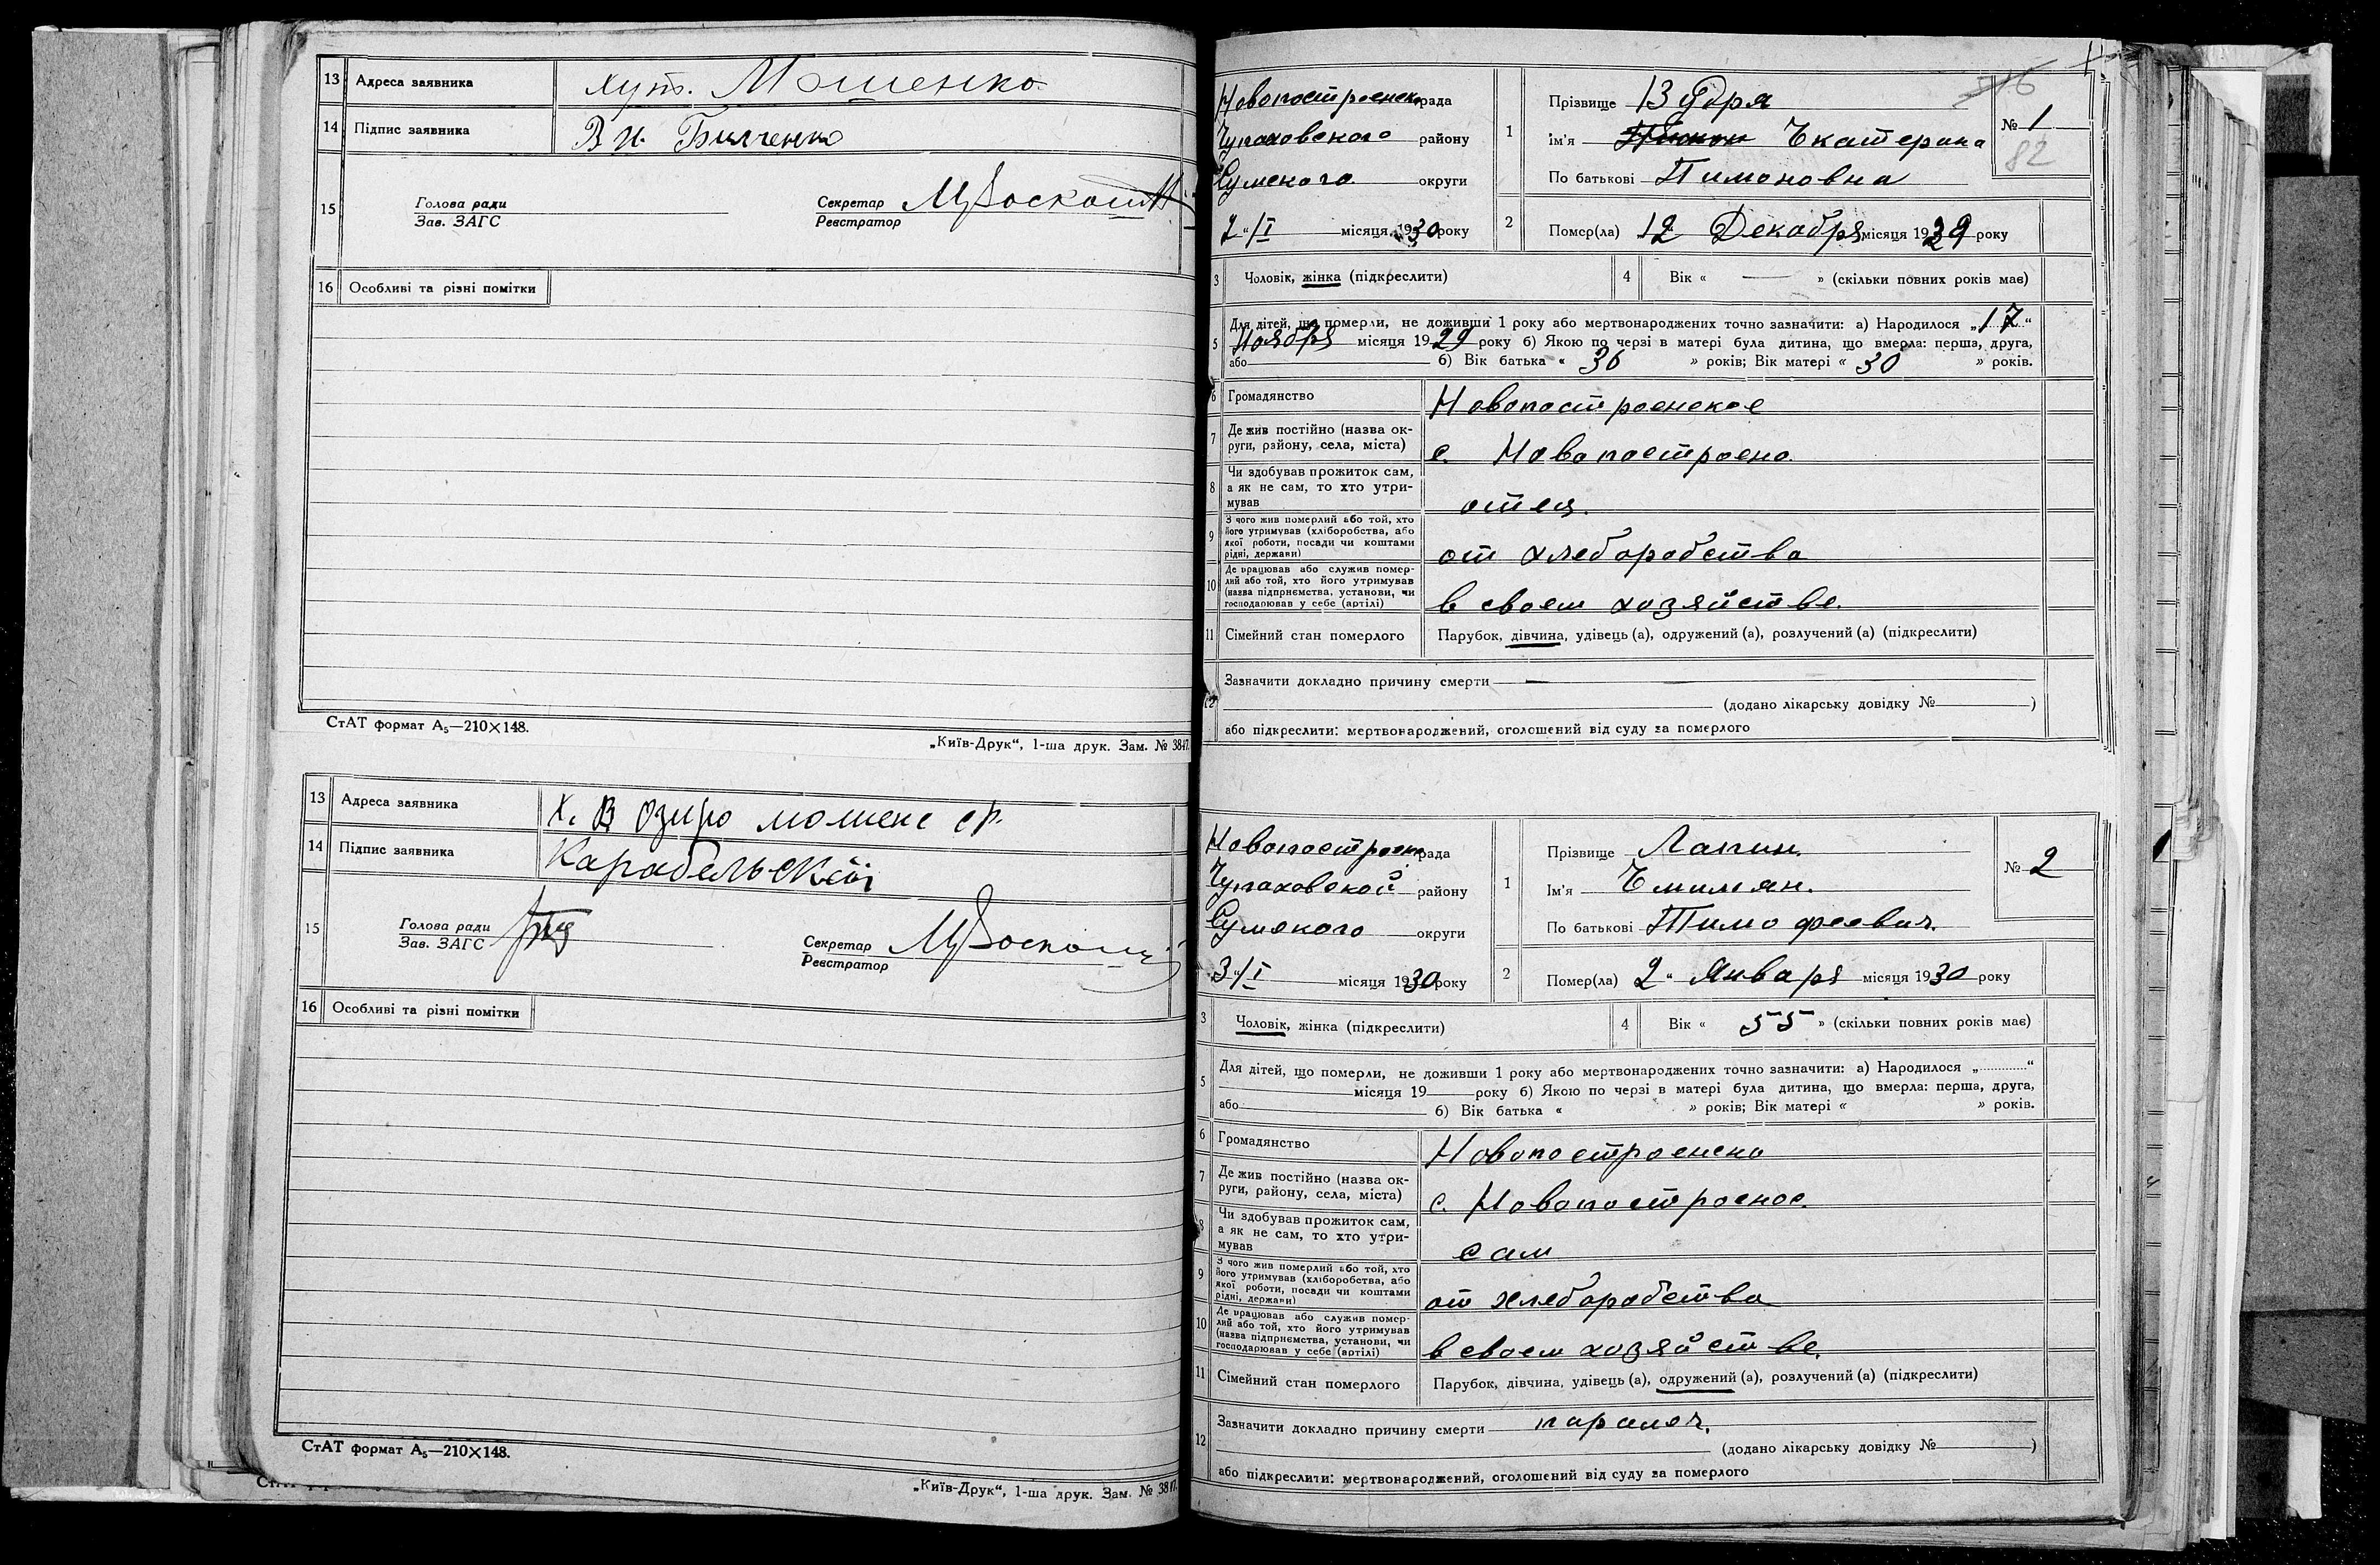 13 Адреса заявника хут. Мошенко.
14 Підпис заявника В И. Билченко
15 Голова ради Секретар
Зав. ЗАГС Реєстратор
16 Особливі та різні помітки
СтАТ формат А₅—210×148.
„Київ-Друк“, 1-ша друк. Зам. № 3847.
13 Адреса заявника Х. В Озиро
14 Підпис заявника Карабельскій
15 Голова ради Секретар
Зав. ЗАГС Реєстратор
16 Особливі та різні помітки
СтАТ формат А₅—210×148.
„Київ-Друк“, 1-ша друк. Зам. № 3847.
Новопостроенск рада
Чупаховского району
Сумского округи
2 "/I місяця 1930 року
1 Прізвище
ім'я Екатерина
По батькові Тимоновна
№ 1
82
2 Помер(ла) 12 Декабря місяця 1929 року
3 Чоловік, жінка (підкреслити)
4 Вік « — » (скільки повних років має)
5 Для дітей, що померли, не доживши 1 року або мертвонароджених точно зазначити: а) Народилося „17“
Ноября місяця 1929 року б) Якою по черзі в матері була дитина, що вмерла: перша, друга,
або б) Вік батька « 36 » років; Вік матері « 30 » років.
6 Громадянство Новопостроенское
7 Де жив постійно (назва ок-
руги, району, села, міста) с. Новопостроено.
8 Чи здобував прожиток сам,
а як не сам, то хто утри-
мував отец.
9 З чого жив померлий або той, хто
його утримував (хліборобства, або
якої роботи, посади чи коштами
рідні, держави) от хлеборобства
10 Де працював або служив помер-
лий або той, хто його утримував
(назва підприємства, установи, чи
господарював у себе (артілі) в своем хозяйстве.
11 Сімейний стан померлого Парубок, дівчина, удівець (а), одружений (а), розлучений (а) (підкреслити)
12 Зазначити докладно причину смерти —
(додано лікарську довідку № )
або підкреслити: мертвонароджений, оголошений від суду за померлого
Новопостроен рада
Чупаховской району
Сумского округи
3 "/I місяця 1930 року
1 Прізвище Лапин.
Ім'я Емилиян.
По батькові Тимофеевич.
№ 2
2 Помер(ла) 2 " Января місяця 1930 року
3 Чоловік, жінка (підкреслити)
4 Вік « 55 » (скільки повних років має)
5 Для дітей, що померли, не доживши 1 року або мертвонароджених точно зазначити: а) Народилося „ “
місяця 19 року б) Якою по черзі в матері була дитина, що вмерла: перша, друга,
або б) Вік батька « » років; Вік матері « » років.
6 Громадянство Новопостроенско
7 Де жив постійно (назва ок-
руги, району, села, міста) с. Новопостроеное.
8 Чи здобував прожиток сам,
а як не сам, то хто утри-
мував сам
9 З чого жив померлий або той, хто
його утримував (хліборобства, або
якої роботи, посади чи коштами
рідні, держави) от хлеборобства
10 Де працював або служив помер-
лий або той, хто його утримував
(назва підприємства, установи, чи
господарював у себе (артілі) в своем хозяйстве.
11 Сімейний стан померлого Парубок, дівчина, удівець (а), одружений (а), розлучений (а) (підкреслити)
12 Зазначити докладно причину смерти паралеч.
(додано лікарську довідку № )
або підкреслити: мертвонароджений, оголошений від суду за померлого